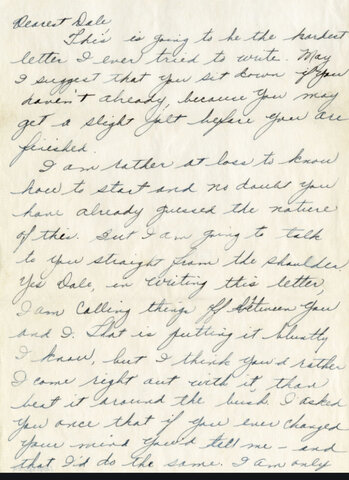 Dearest Dale
This is going to be the hardest
letter I ever tried to write. May
I suggest that you sit down if you
haven't already, because you may
get a slight jolt before you are
finished.
I am rather at loss to know
how to start and no doubt you
have already guessed the nature
of this. But I am going to talk
to you straight from the shoulder.
Yes Dale, in writing this letter,
I am calling things off between you
and I. That is putting it bluntly
I know, but I think you'd rather
I come right out with it, than
beat it around the bush. I asked
you once that if you ever changed
your mind you'd tell me - and
that I'd do the same. I am only